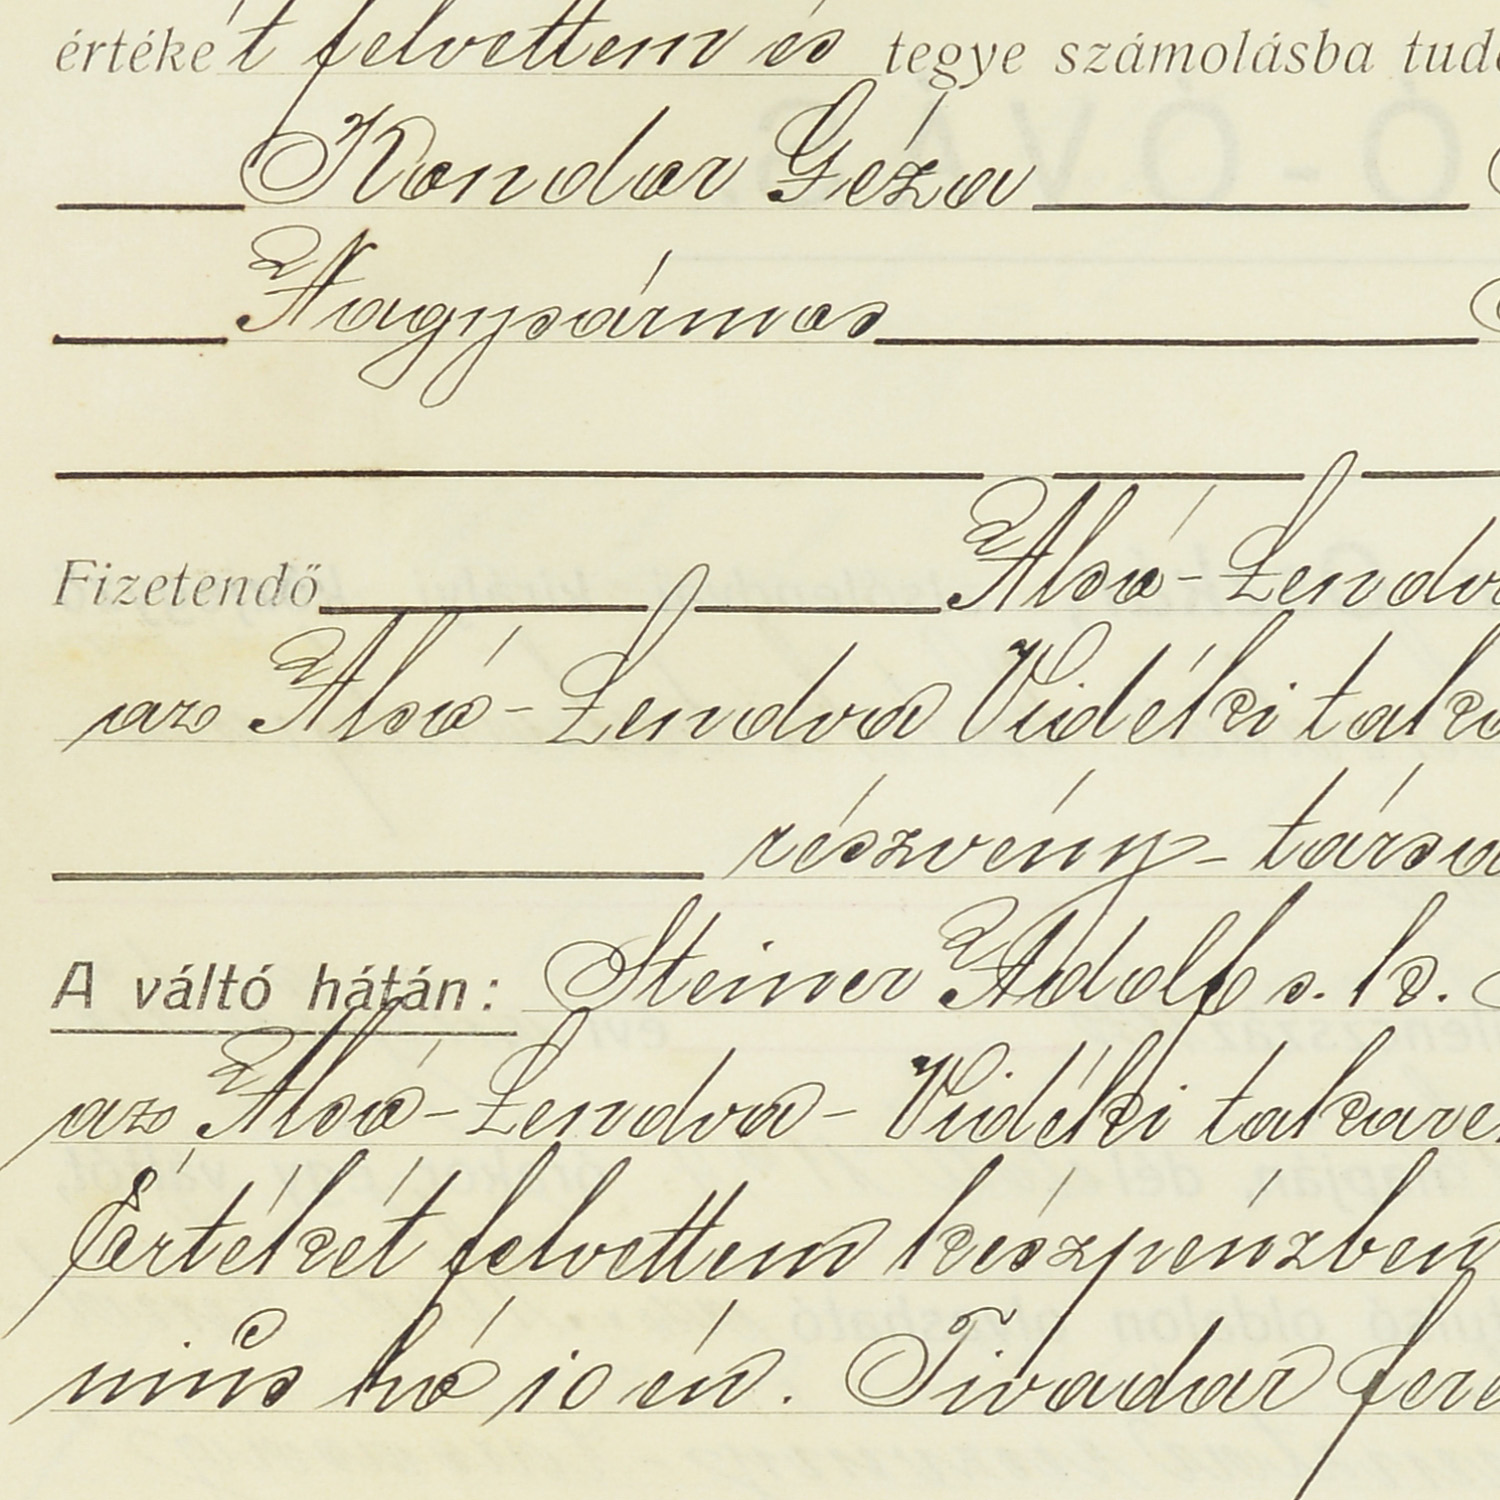 értékét felvettem és tegye számolásba
Kondor Géza
Nagysármás
Fizetendő Alsó-Lendva
az Alsó-Lendva Vidéki
részvény-
A váltó hátán: Steiner Adolf s. k.
az Alsó-Lendva-Vidéki
Értékét felvettem készpénzben
nius hó 10 én. Tivadar